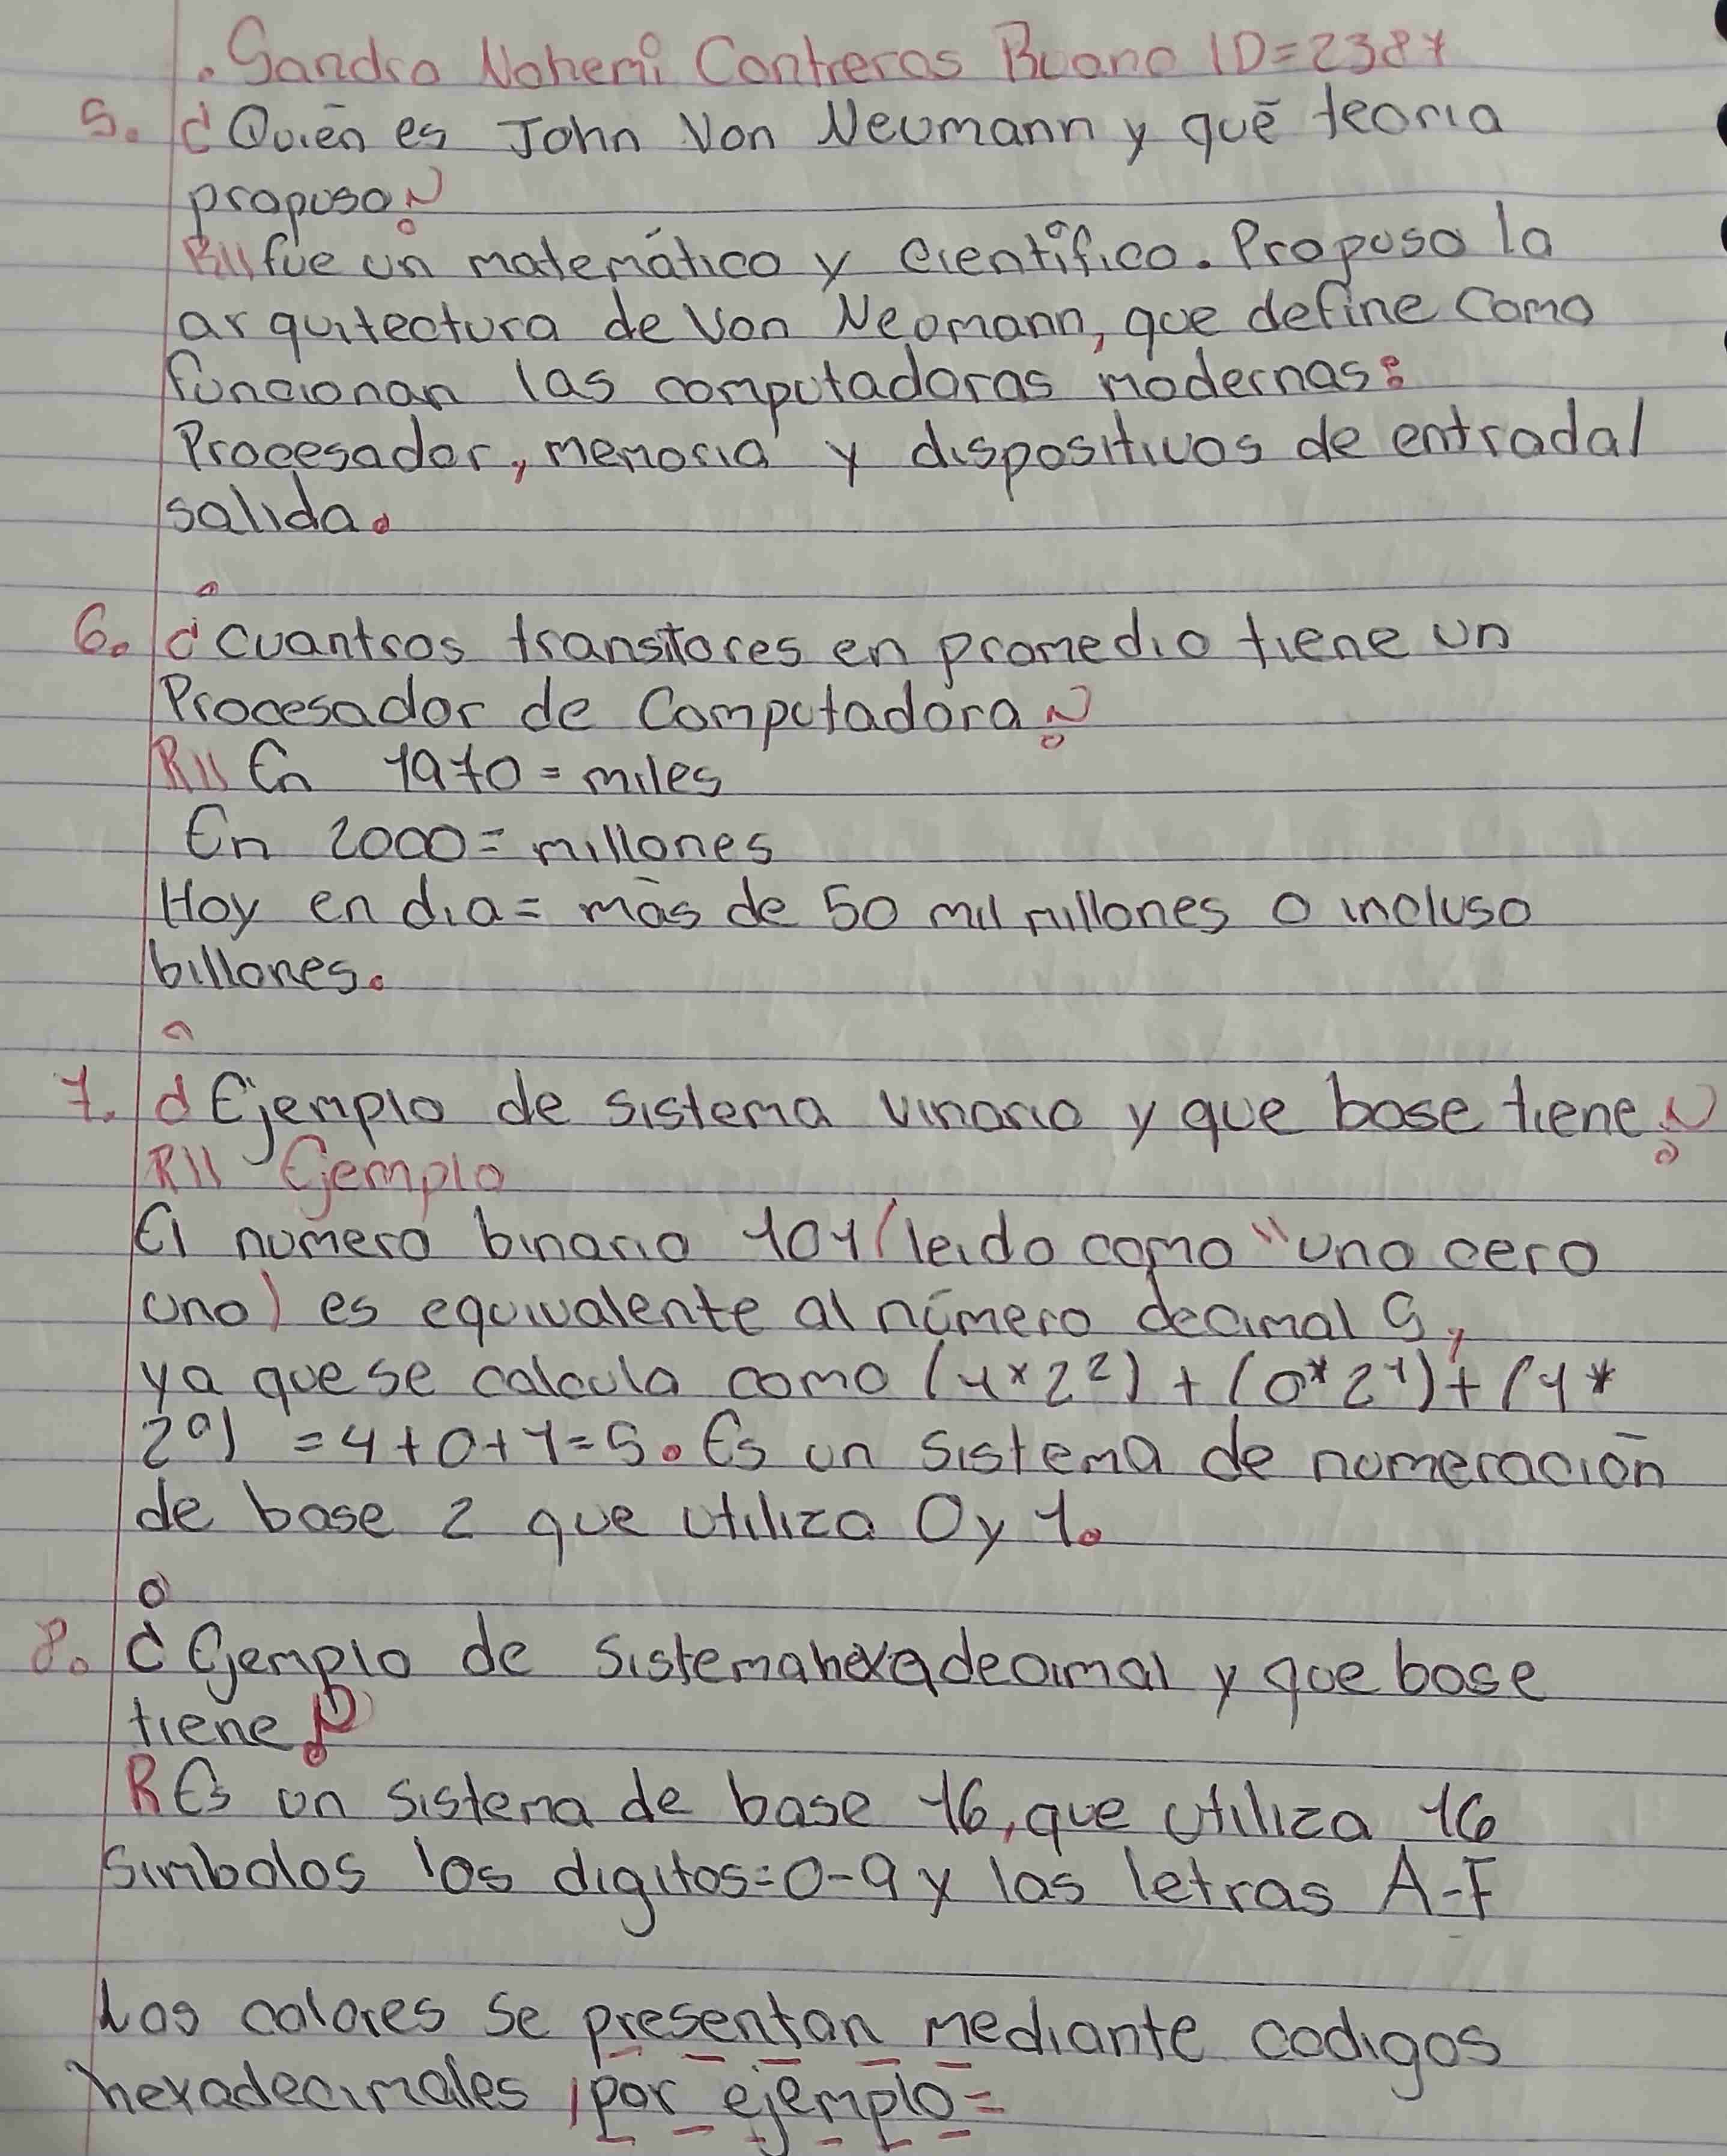 . Sandra Nohemi Contreras Buano ID=2387
5. ¿Quién es John Von Neumann y qué teoria
propuso?
R// fue un matemático y científico. Propuso la
arquitectura de Von Neomann, que define como
funcionan las computadoras modernas:
Procesador, memoria y dispositivos de entrada/
salida.
6. ¿Cuantros transitores en promedio tiene un
Procesador de Computadora?
R// En 1970 = miles
En 2000 = millones
Hoy en dia = más de 50 mil millones o incluso
billones.
7. ¿Ejemplo de sistema vinario y que base tiene?
R// Ejemplo
El numero binario 101 (leido como "uno cero
uno) es equivalente al número decimal 5,
ya que se calcula como (1*2²) + (0*2¹) + (1*
2⁰) = 4+0+1=5. Es un sistema de numeración
de base 2 que utiliza 0 y 1.
8. ¿Ejemplo de sistema hexadecimal y que base
tiene?
R Es un sistema de base 16, que utiliza 16
Simbolos los digitos=0-9 y las letras A-F
Los colores se presentan mediante codigos
hexadecimales, por ejemplo=